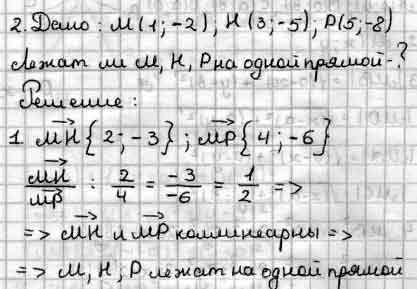 2. Дано: М(1;-2); Н(3;-5); Р(5;-8)
Лежат ли М, Н, Р на одной прямой-?
Решение:
1. →МН{2;-3}; →МР{4;-6}
→МН/→МР : 2/4 = -3/-6 = 1/2 =>
=> →МН и →МР коллинеарны =>
=> М, Н, Р лежат на одной прямой